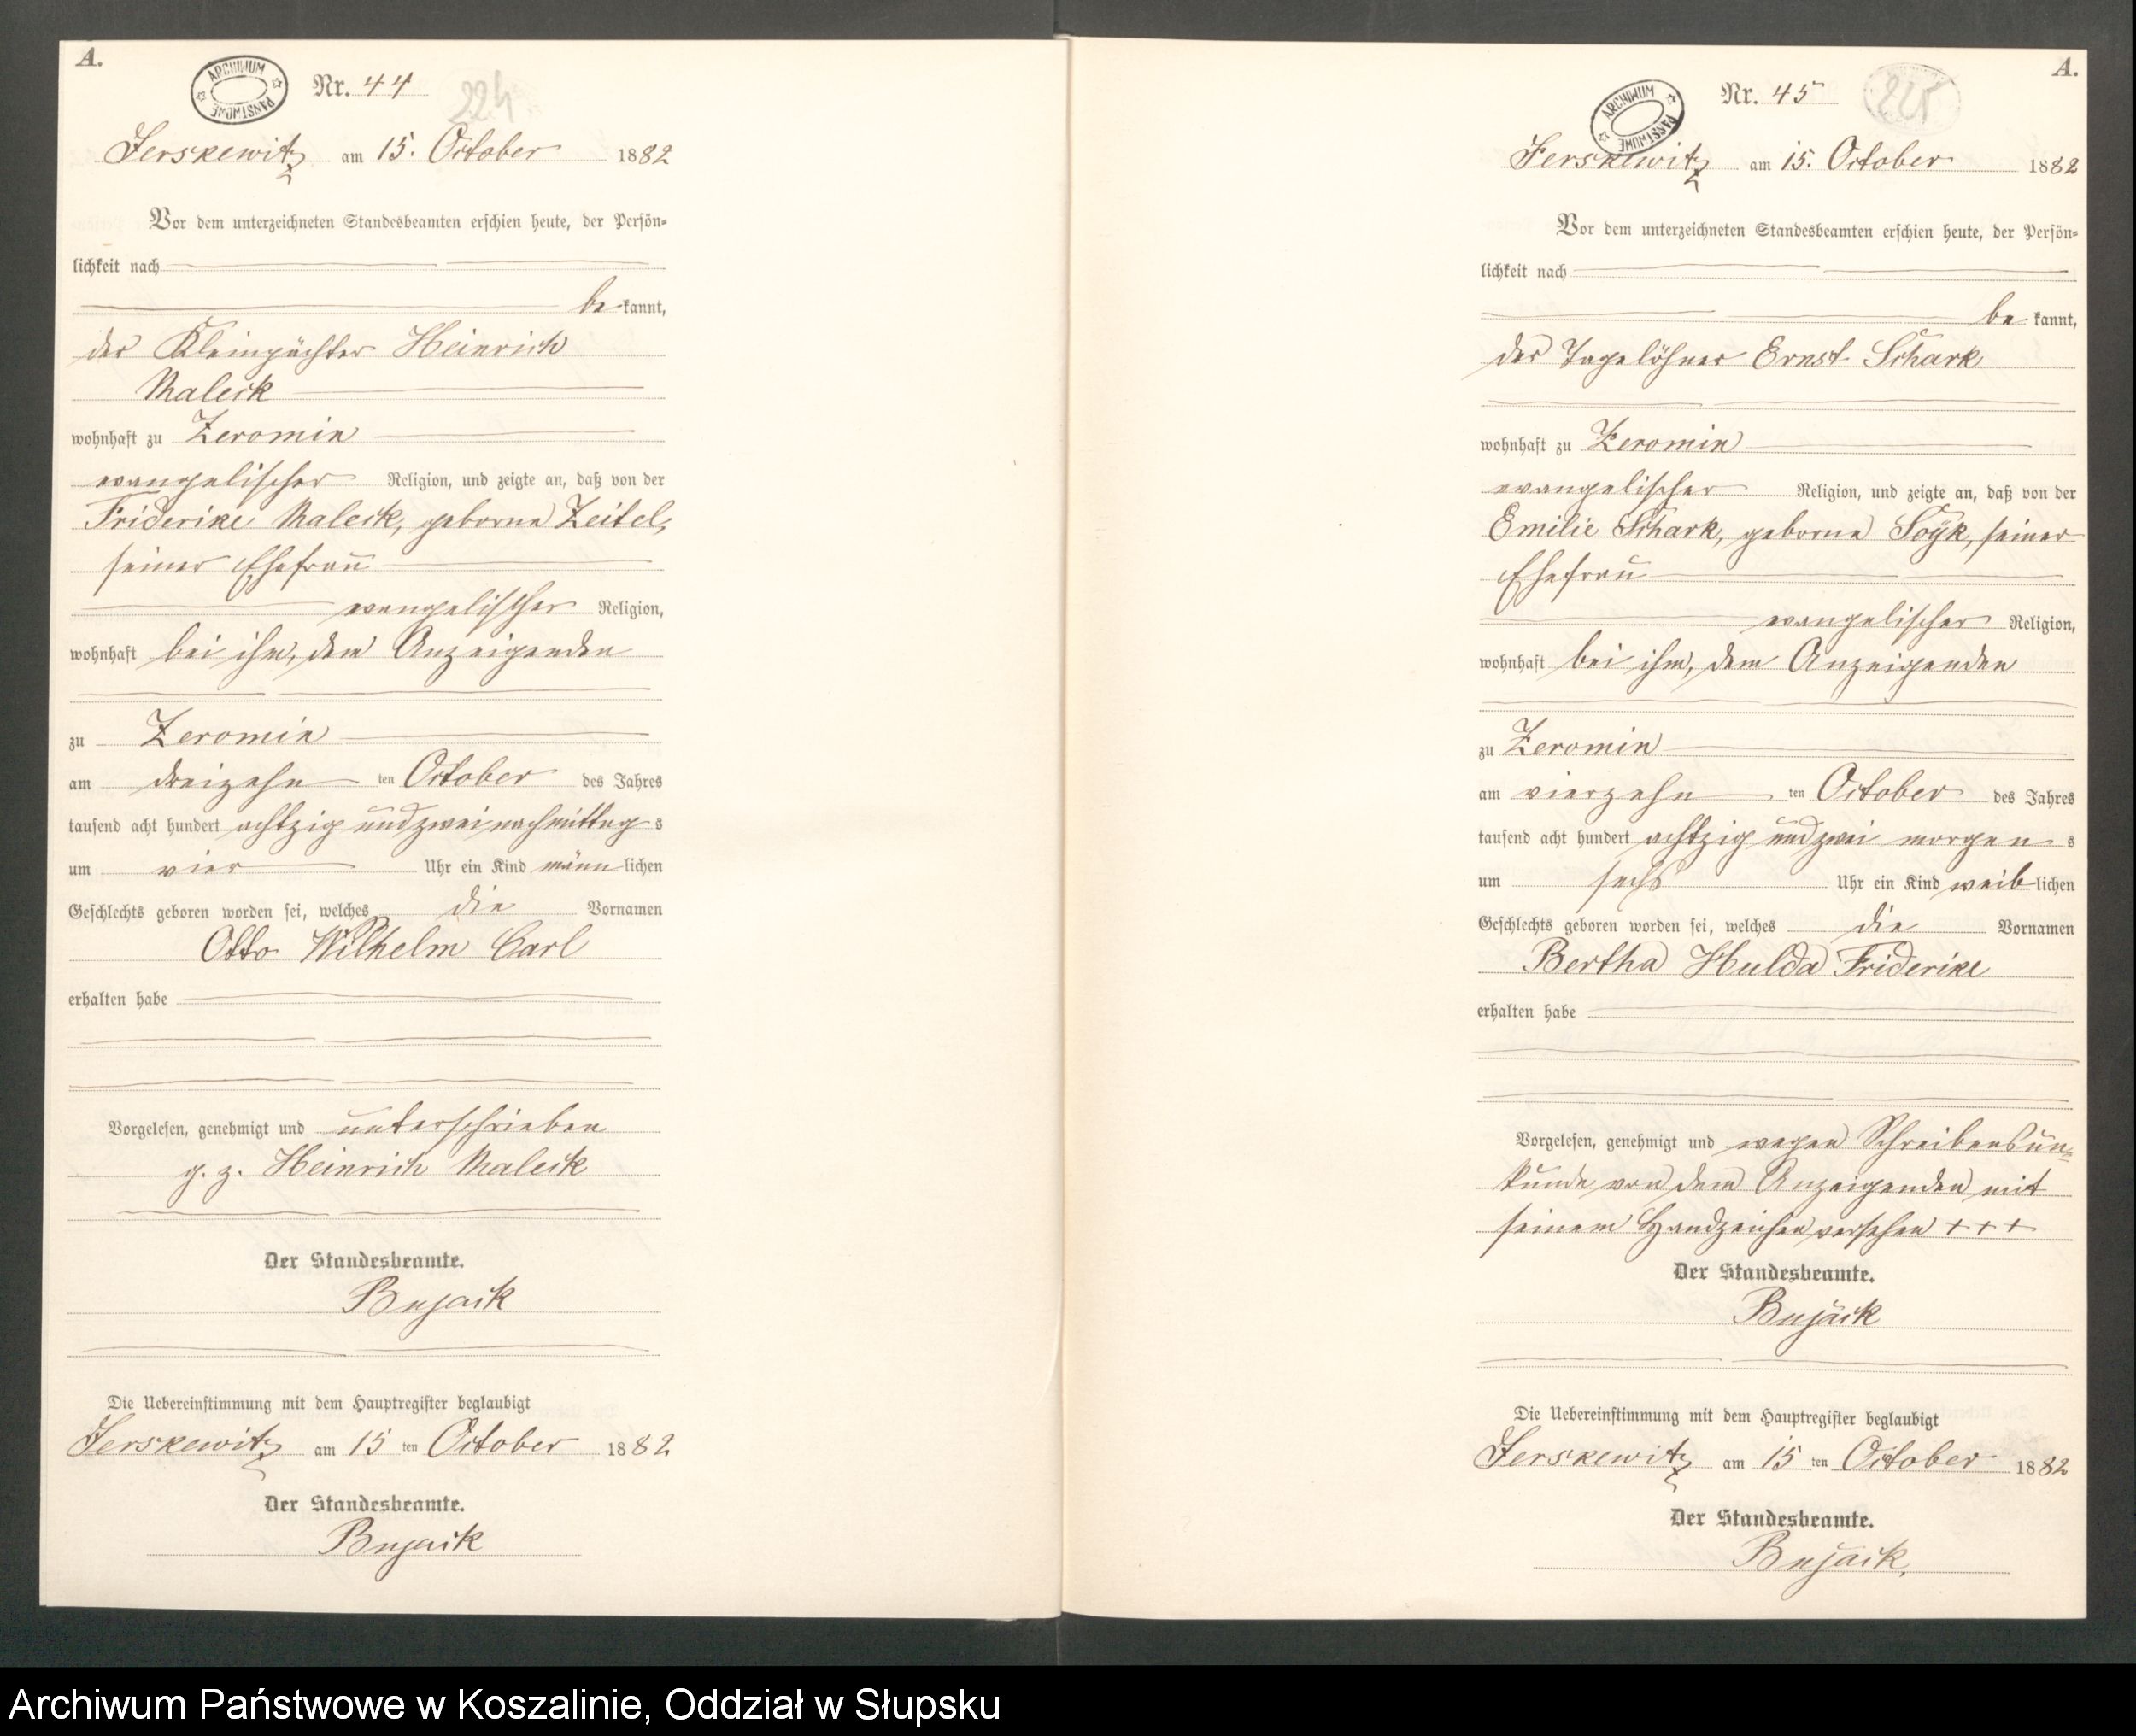 A.
ARCHIWUM PAŃSTWOWE
Nr. 44
224
Jerskewitz am 15. October 1882
Vor dem unterzeichneten Standesbeamten erschien heute, der Persön-
lichkeit nach
be kannt,
der Kleinpächter Heinrich
Maleck
wohnhaft zu Zeromin
evangelischer Religion, und zeigte an, daß von der
Friderike Maleck, geborne Zeitel,
seiner Ehefrau
evangelischer Religion,
wohnhaft bei ihm, dem Anzeigenden
zu Zeromin
am dreizehn ten October des Jahres
tausend acht hundert achtzig und zwei nachmittag s
um vier Uhr ein Kind männ lichen
Geschlechts geboren worden sei, welches die Vornamen
Otto Wilhelm Carl
erhalten habe
Vorgelesen, genehmigt und unterschrieben
g. z. Heinrich Maleck
Der Standesbeamte.
Bujack
Die Uebereinstimmung mit dem Hauptregister beglaubigt
Jerskewitz am 15 ten October 1882
Der Standesbeamte.
Bujack
A.
ARCHIWUM PAŃSTWOWE
Nr. 45
225
Jerskewitz am 15. October 1882
Vor dem unterzeichneten Standesbeamten erschien heute, der Persön-
lichkeit nach
be kannt,
der Tagelöhner Ernst Schark
wohnhaft zu Zeromin
evangelischer Religion, und zeigte an, daß von der
Emilie Schark, geborne Soyk, seiner
Ehefrau
evangelischer Religion,
wohnhaft bei ihm, dem Anzeigenden
zu Zeromin
am vierzehn ten October des Jahres
tausend acht hundert achtzig und zwei morgen s
um sechs Uhr ein Kind weib lichen
Geschlechts geboren worden sei, welches die Vornamen
Bertha Hulda Friderike
erhalten habe
Vorgelesen, genehmigt und wegen Schreibensun-
kunde von dem Anzeigenden mit
seinem Handzeichen versehen + + +
Der Standesbeamte.
Bujack
Die Uebereinstimmung mit dem Hauptregister beglaubigt
Jerskewitz am 15 ten October 1882
Der Standesbeamte.
Bujack.
Archiwum Państwowe w Koszalinie, Oddział w Słupsku